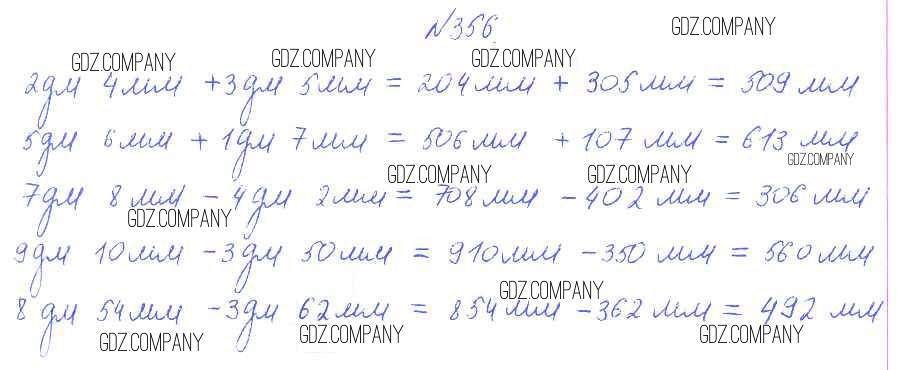 N356
GDZ.COMPANY
GDZ.COMPANY GDZ.COMPANY GDZ.COMPANY
2дм 4мм + 3дм 5мм = 204мм + 305мм = 509мм
5дм 6мм + 1дм 7мм = 506мм + 107мм = 613мм
GDZ.COMPANY
GDZ.COMPANY GDZ.COMPANY
7дм 8мм - 4дм 2мм = 708мм - 402мм = 306мм
GDZ.COMPANY
9дм 10мм - 3дм 50мм = 910мм - 350мм = 560мм
GDZ.COMPANY
8дм 54мм - 3дм 62мм = 854мм - 362мм = 492мм
GDZ.COMPANY GDZ.COMPANY GDZ.COMPANY